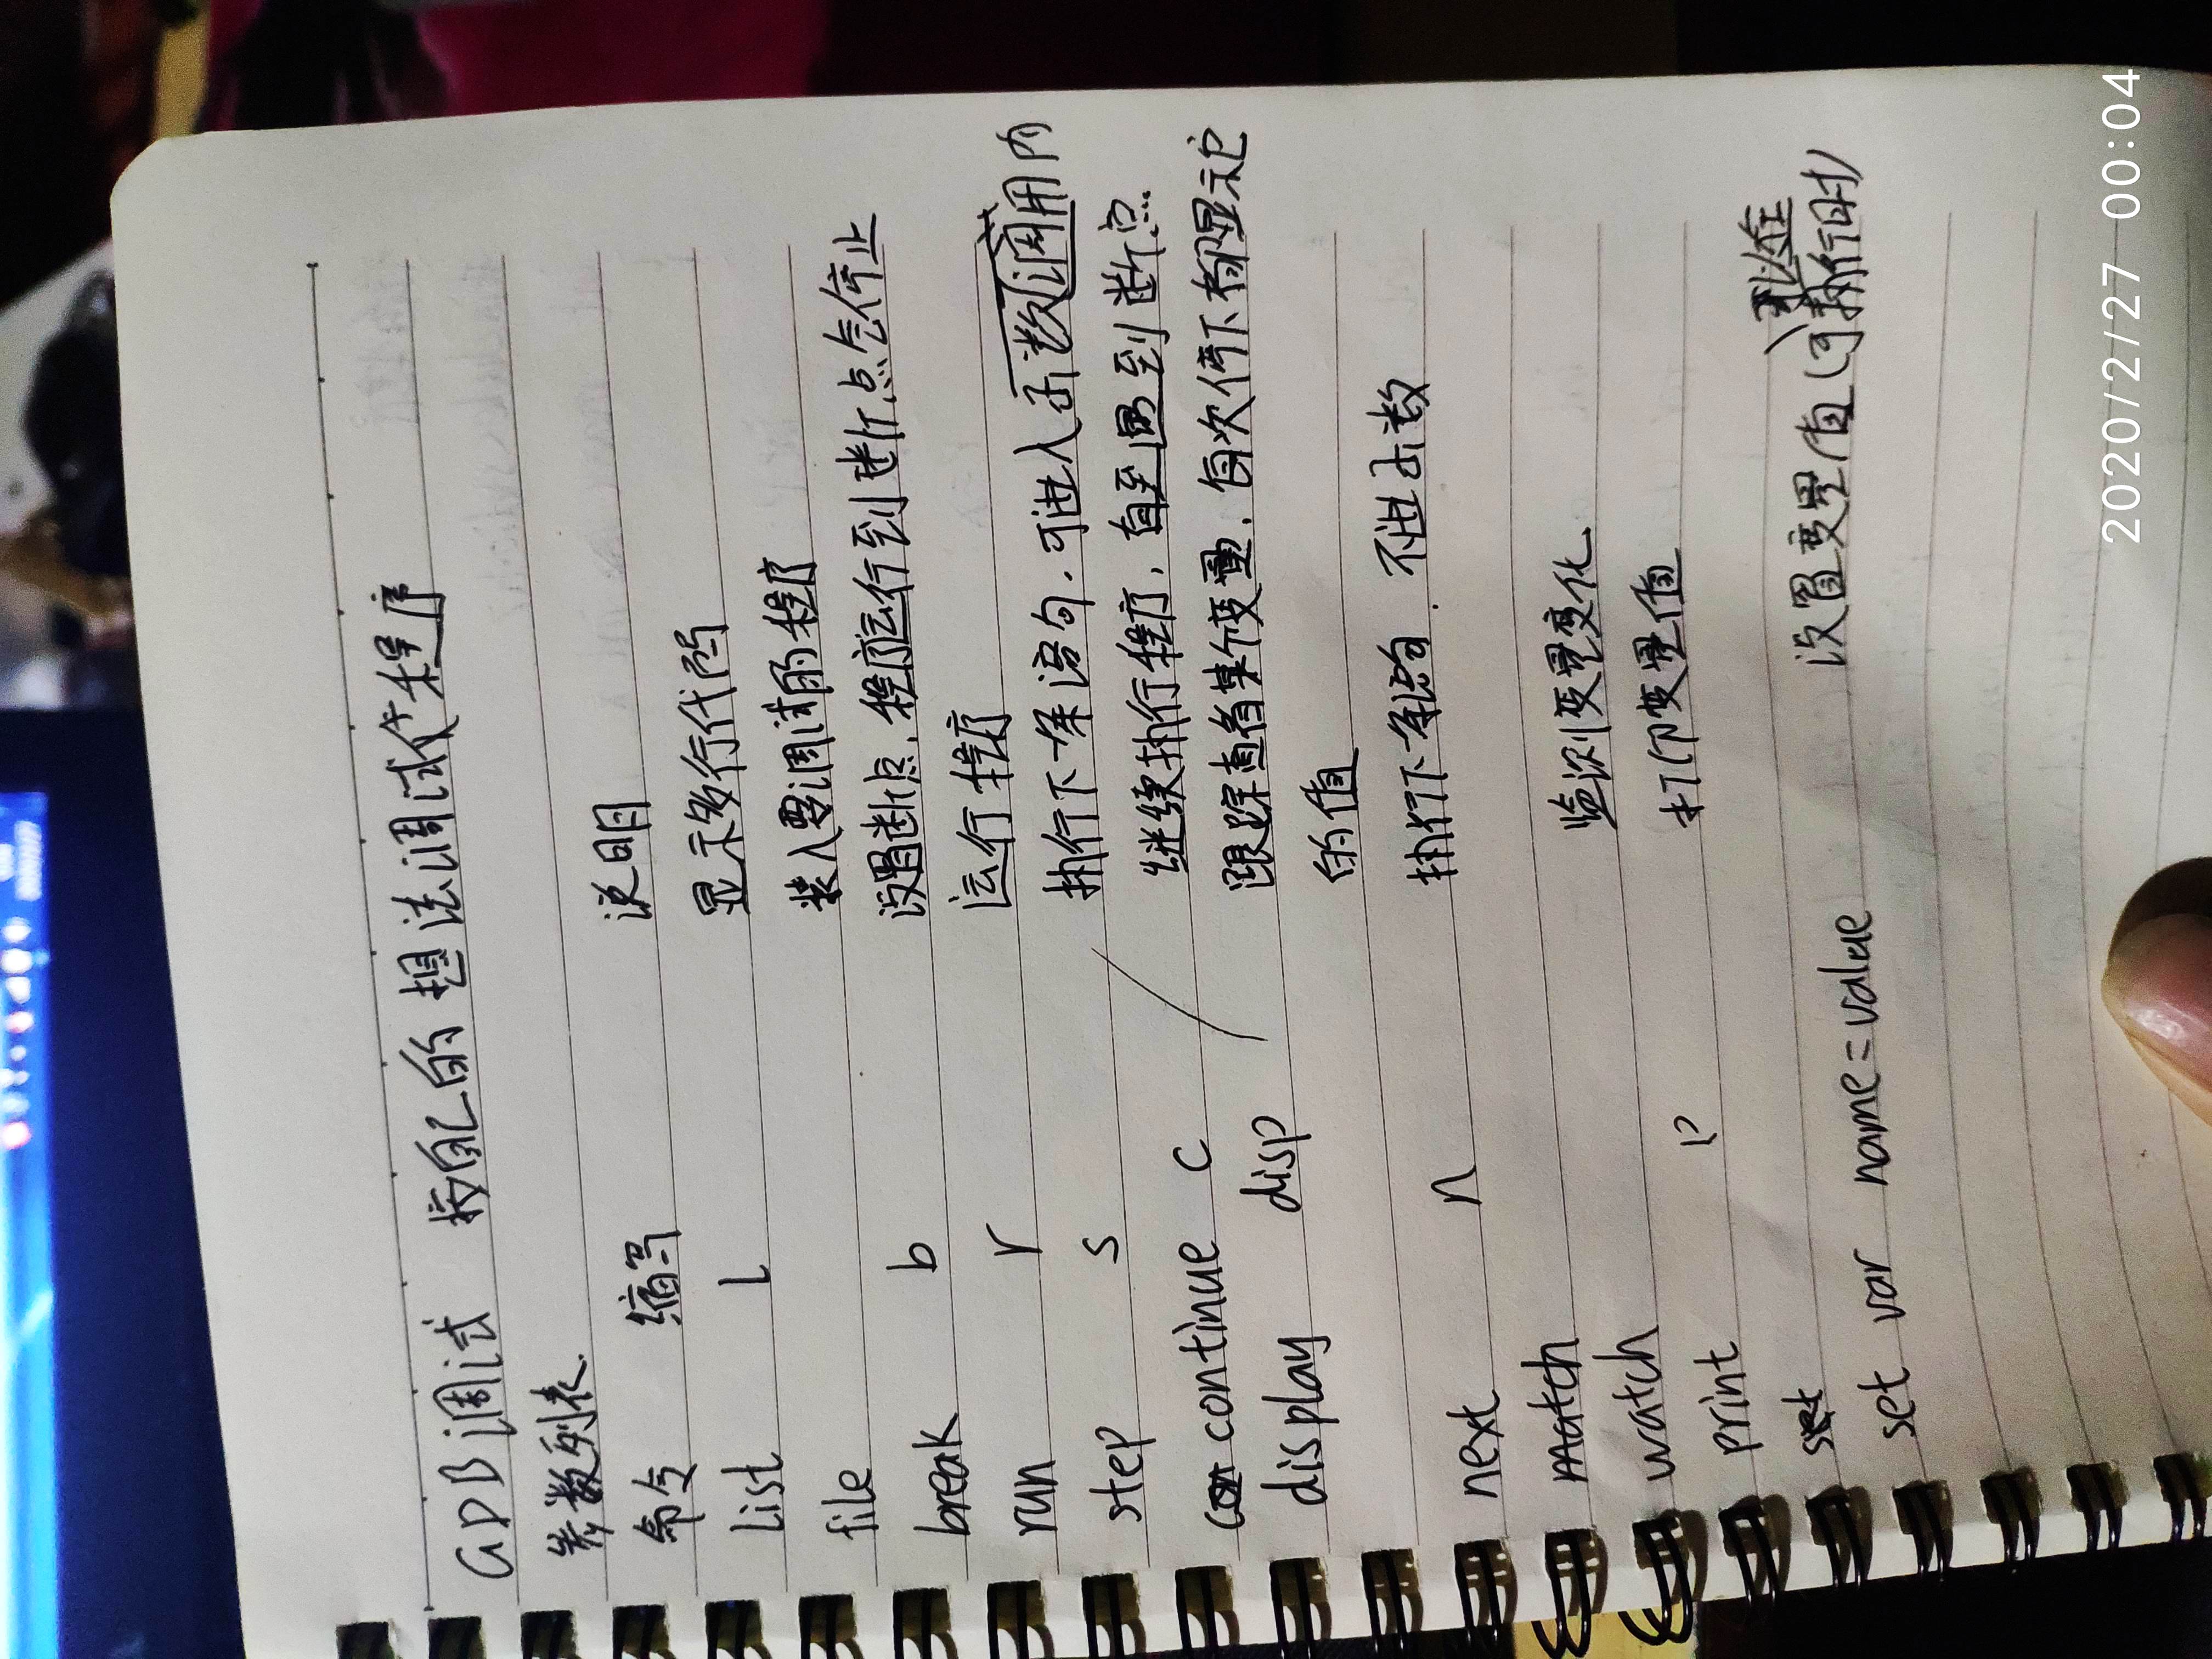 GDB调试 按自己的想法调试代程序
参数列表.
命令 缩写 说明
list l 显示多行代码
file 装入要调试的程序
break b 设置断点,程序运行到断点会停止
run r 运行程序
step s 执行下一条语句.可进入函数调用内
continue c 继续执行程序,直至遇到断点
display disp 跟踪查看某个变量,每次停下都显示它
的值
next n 执行下一条语句.不进函数
match
watch 监测变量变化
print p 打印变量值
set
可以在
set var name=value 设置变量值(可执行时)
2020/2/27 00:04